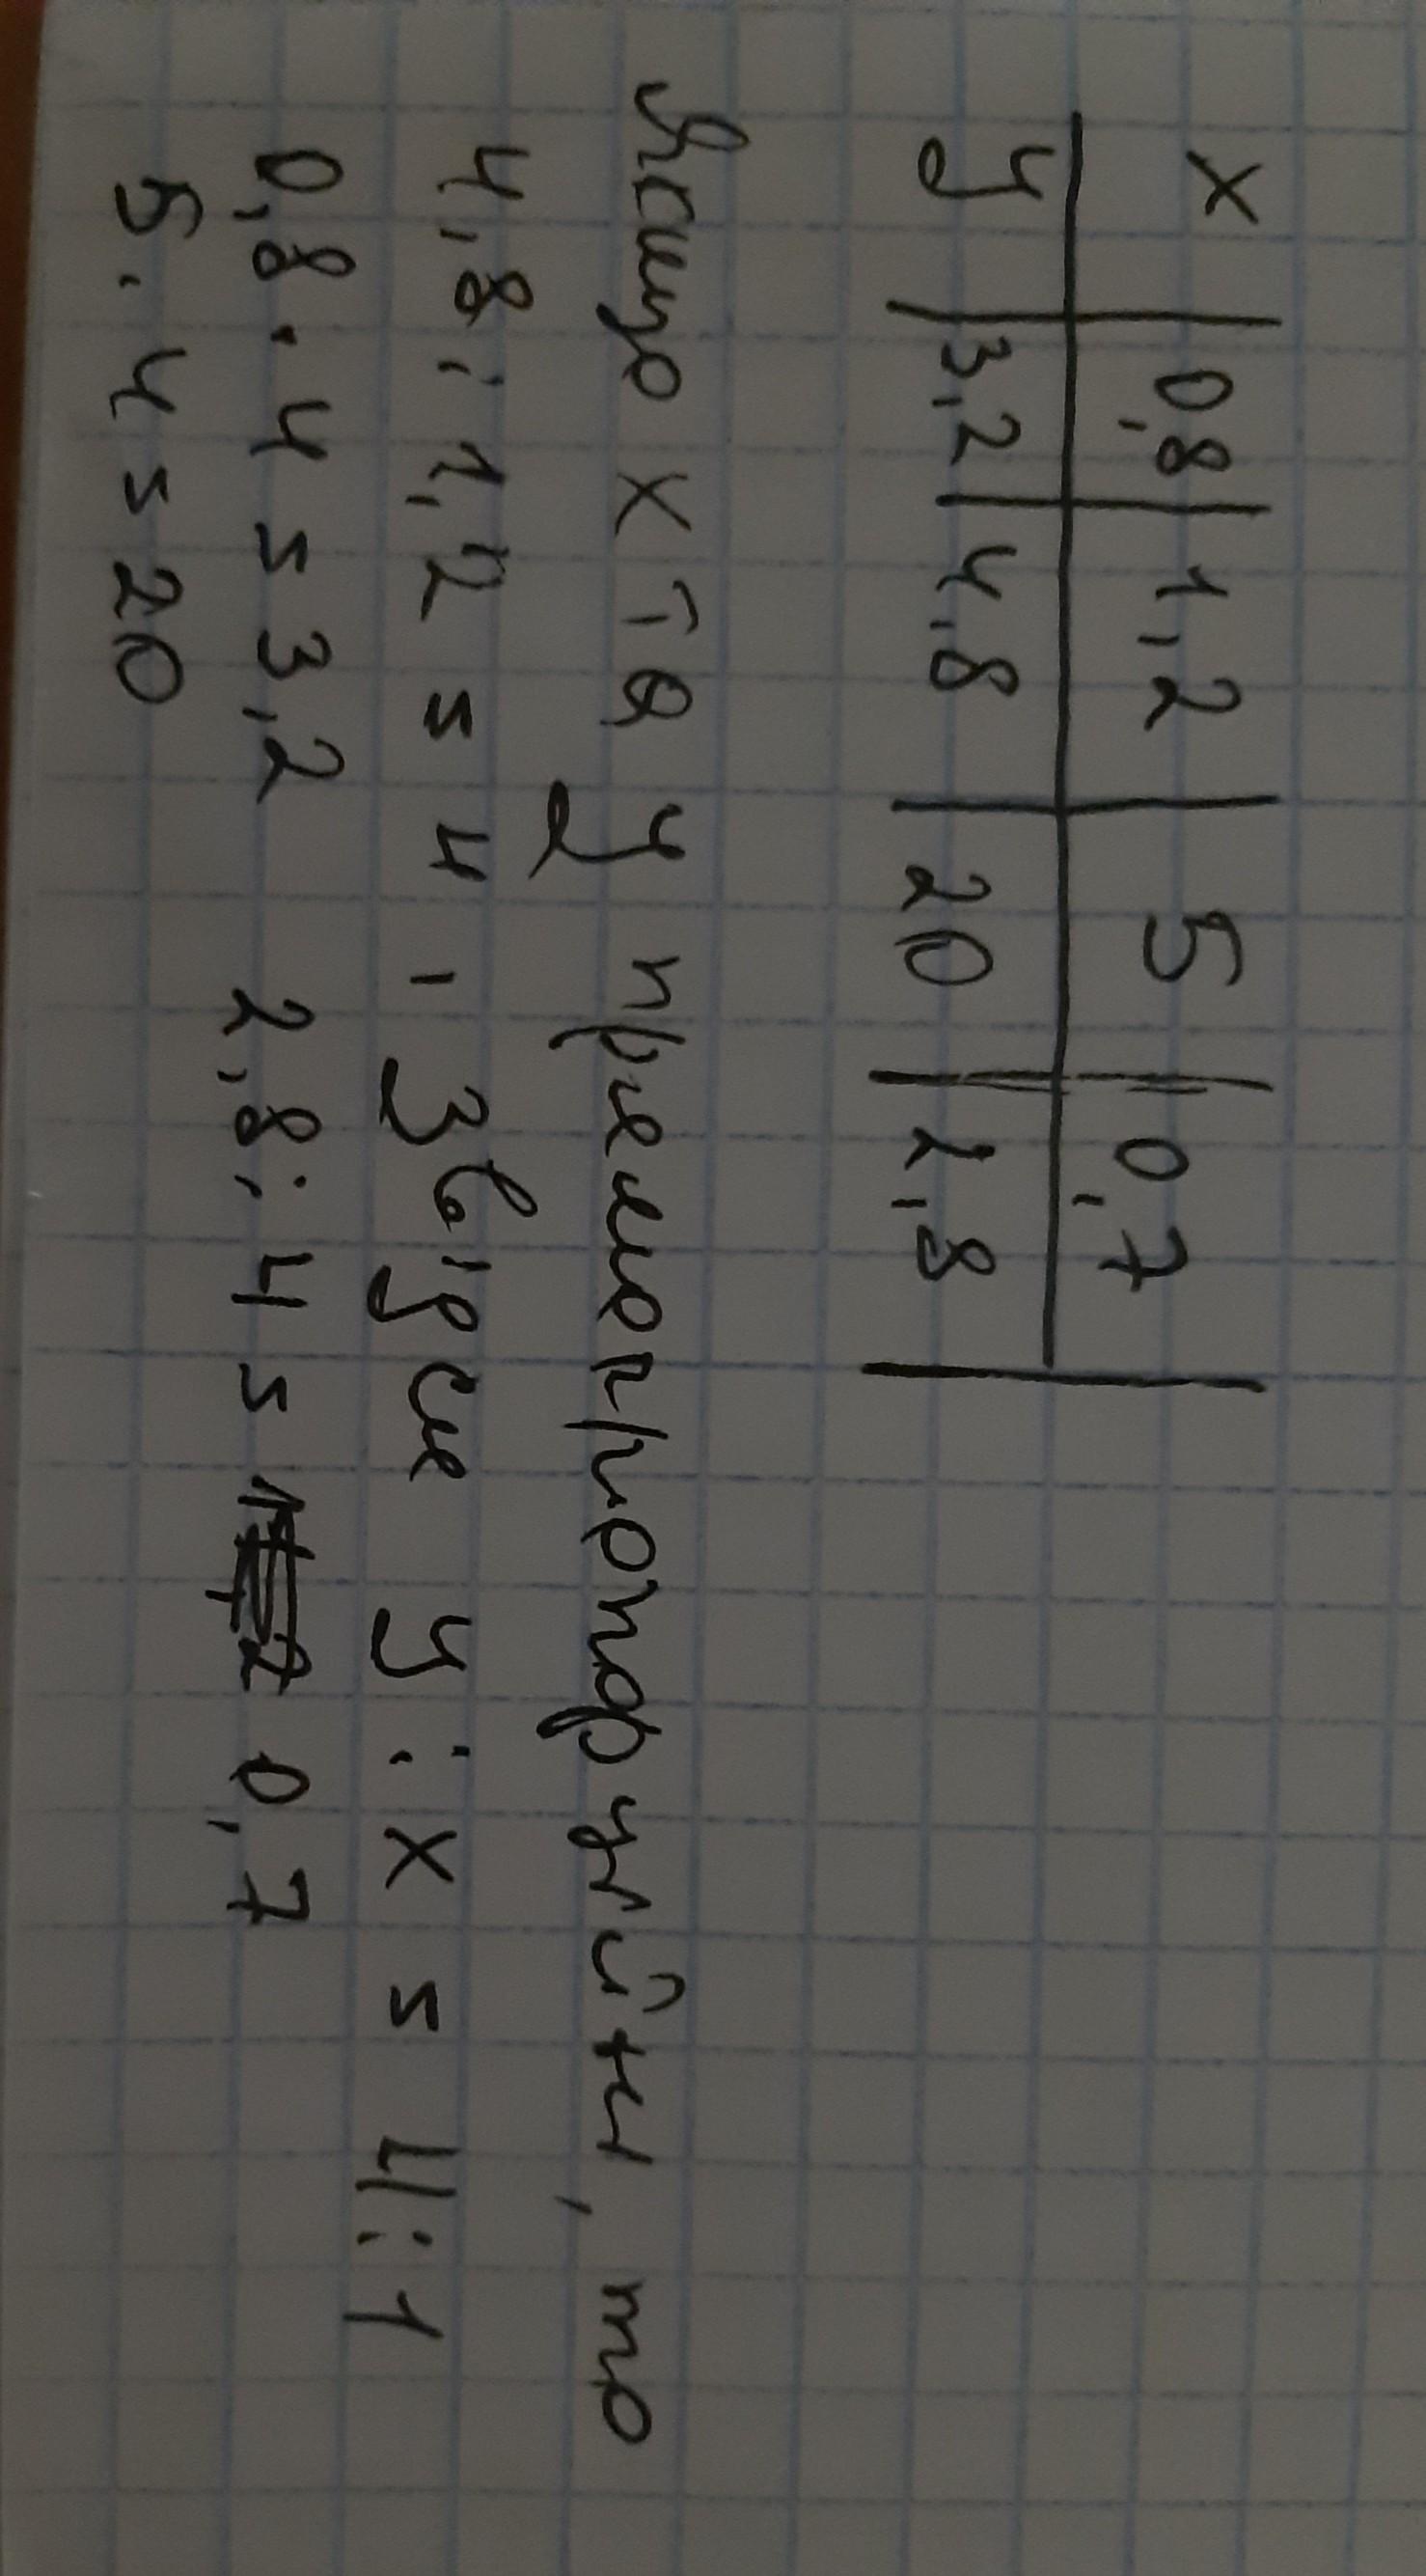 x | 0,8 | 1,2 | 5 | 0,7
y | 3,2 | 4,8 | 20 | 2,8
Якщо x та y прямопропорційні, то
4,8 : 1,2 = 4, Звідси y : x = 4:1
0,8 · 4 = 3,2 2,8 : 4 = 0,7
5 · 4 = 20